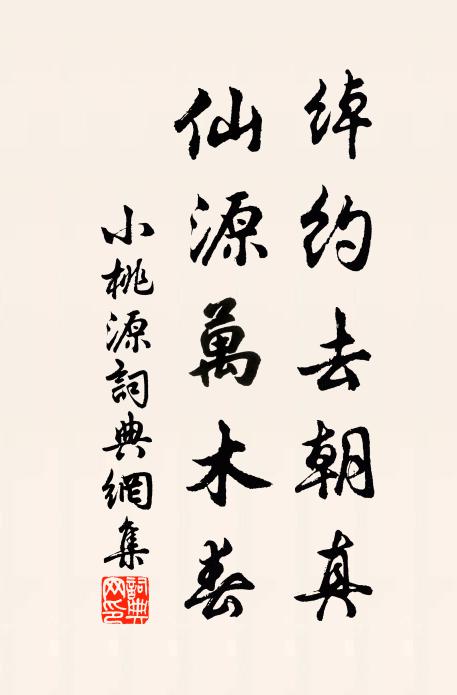 綽約去朝真
仙源萬木春
小桃源詞典網集
詞典网印